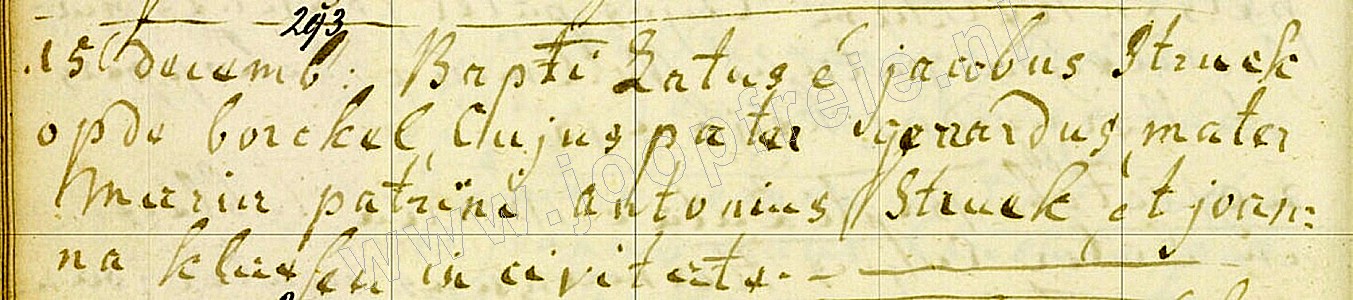 293
15 decemb: Bapti Zatus e jacobus Struek
opde borckel, Cujus pater gerardus, mater
Maria patrini Antonius Struek et joan=
na in civitate
www.joopfreie.nl